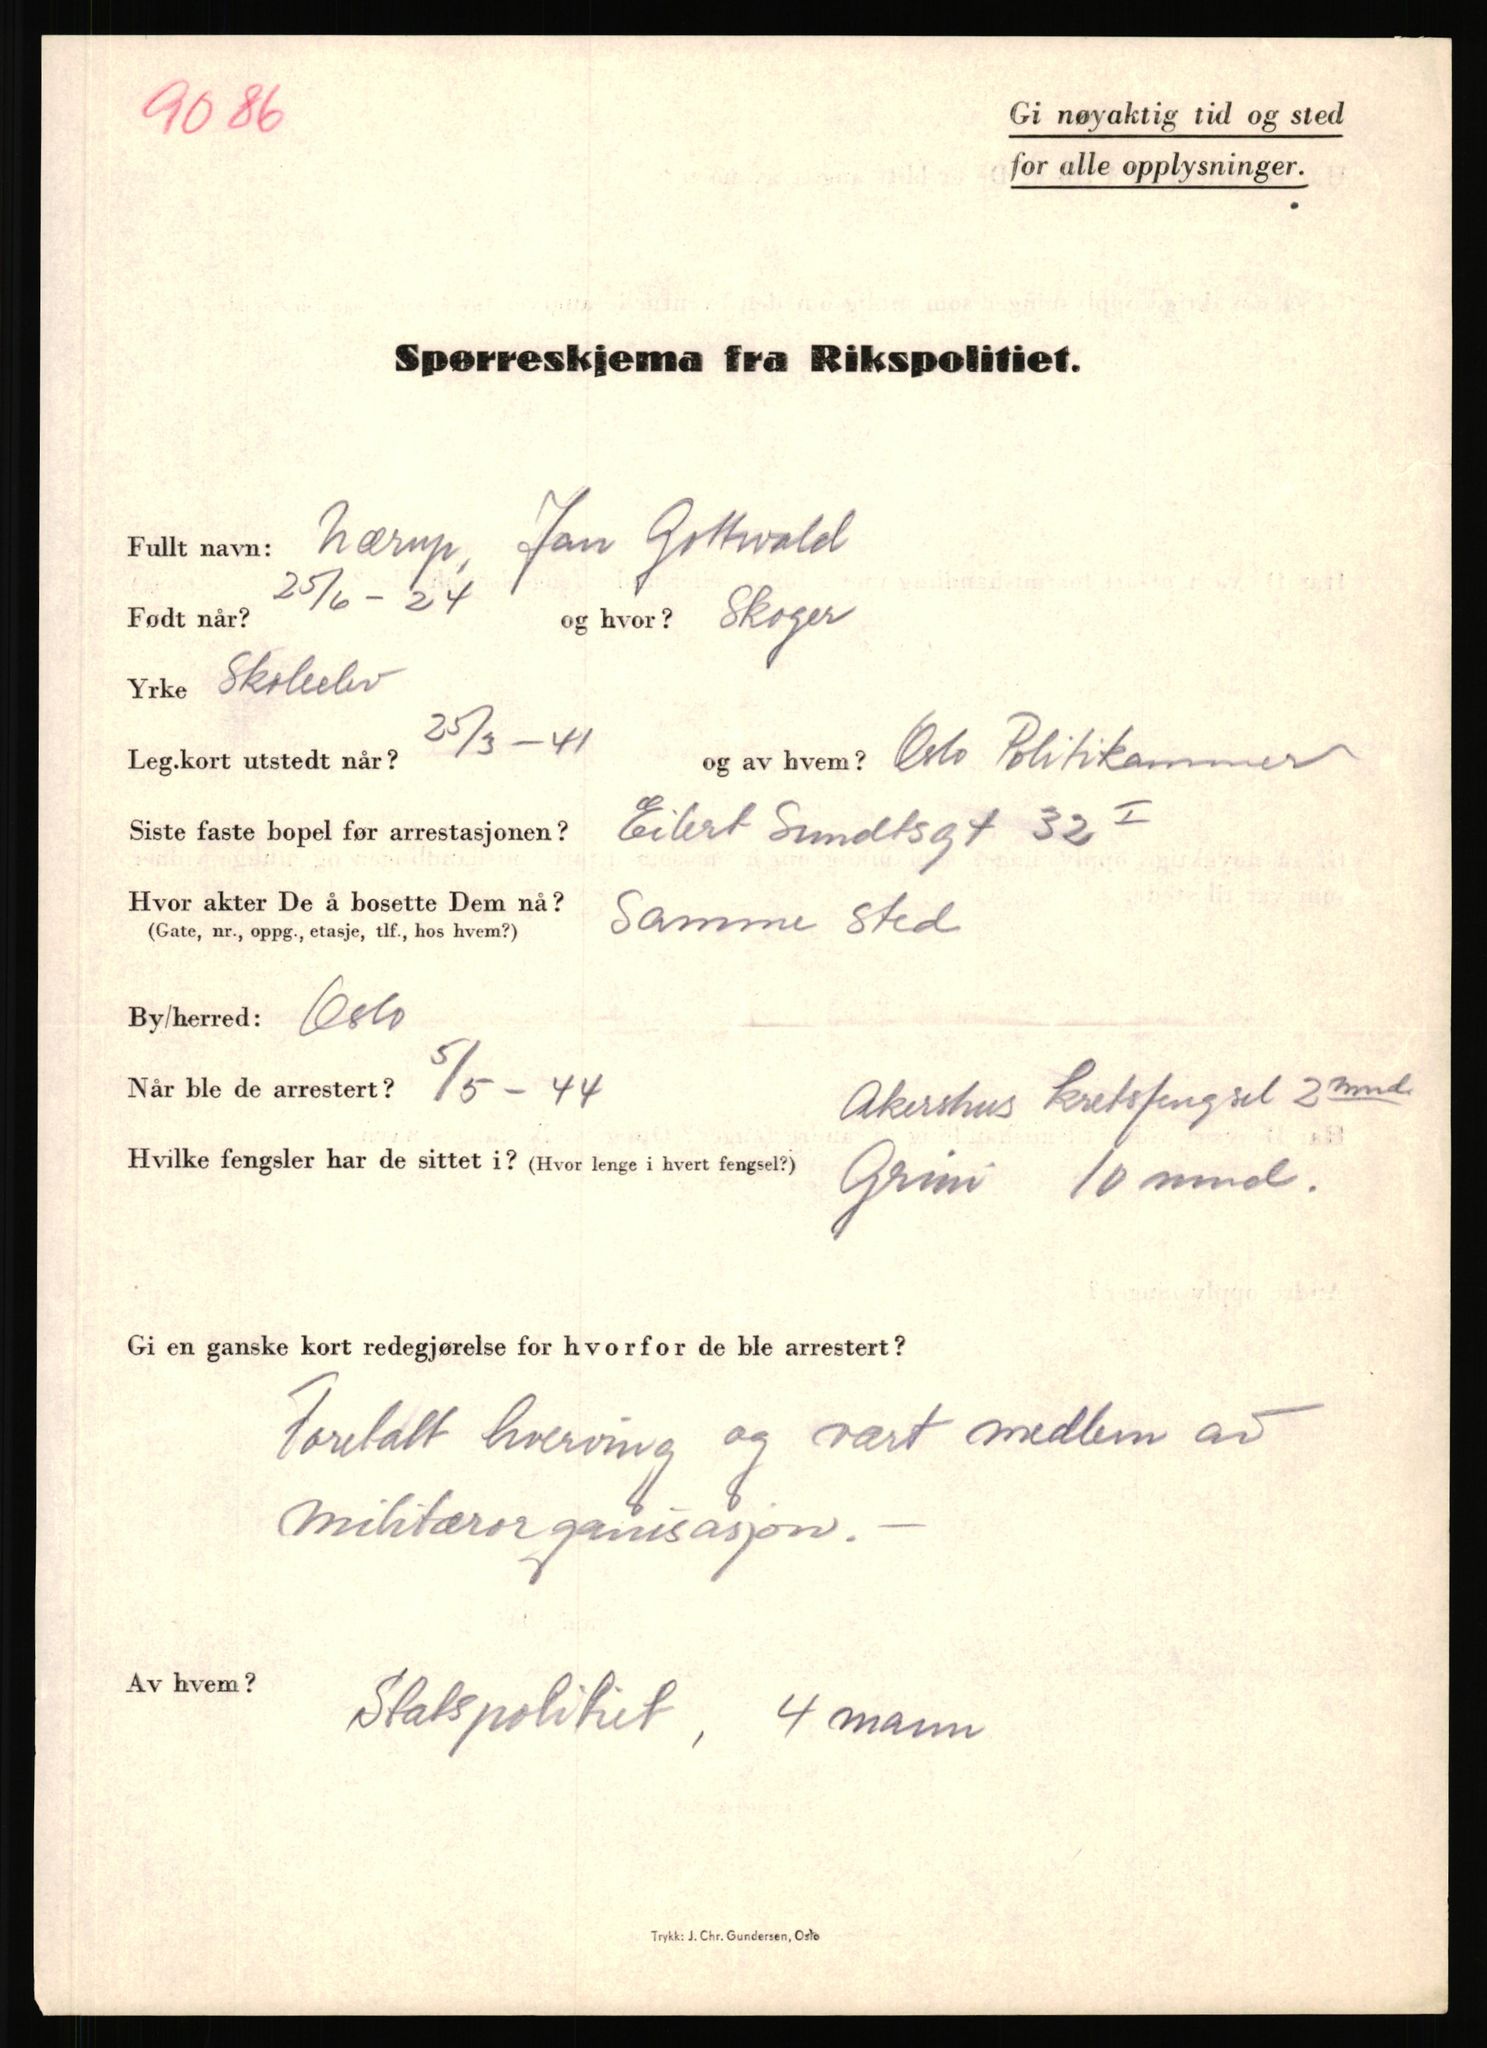 9086
Gi nøyaktig tid og sted
for alle opplysninger.
Spørreskjema fra Rikspolitiet.
Fullt navn: Nærup, Jan Gottwald
Født når? 25/6 - 24 og hvor? Skoger
Yrke Skoleelev
Leg.kort utstedt når? 25/3 - 41 og av hvem? Oslo Politikammer
Siste faste bopel før arrestasjonen? Eilert Sundtsgt 32 I
Hvor akter De å bosette Dem nå? Samme sted
(Gate, nr., oppg., etasje, tlf., hos hvem?)
By/herred: Oslo
Når ble de arrestert? 5/5 - 44
Akershus kretsfengsel 2 mnd.
Hvilke fengsler har de sittet i? (Hvor lenge i hvert fengsel?) Grini 10 mnd.
Gi en ganske kort redegjørelse for hvorfor de ble arrestert?
Foretatt hverving og vært medlem av
militærorganisasjon. —
Av hvem? Statspolitiet, 4 mann
Trykk: J. Chr. Gundersen, Oslo